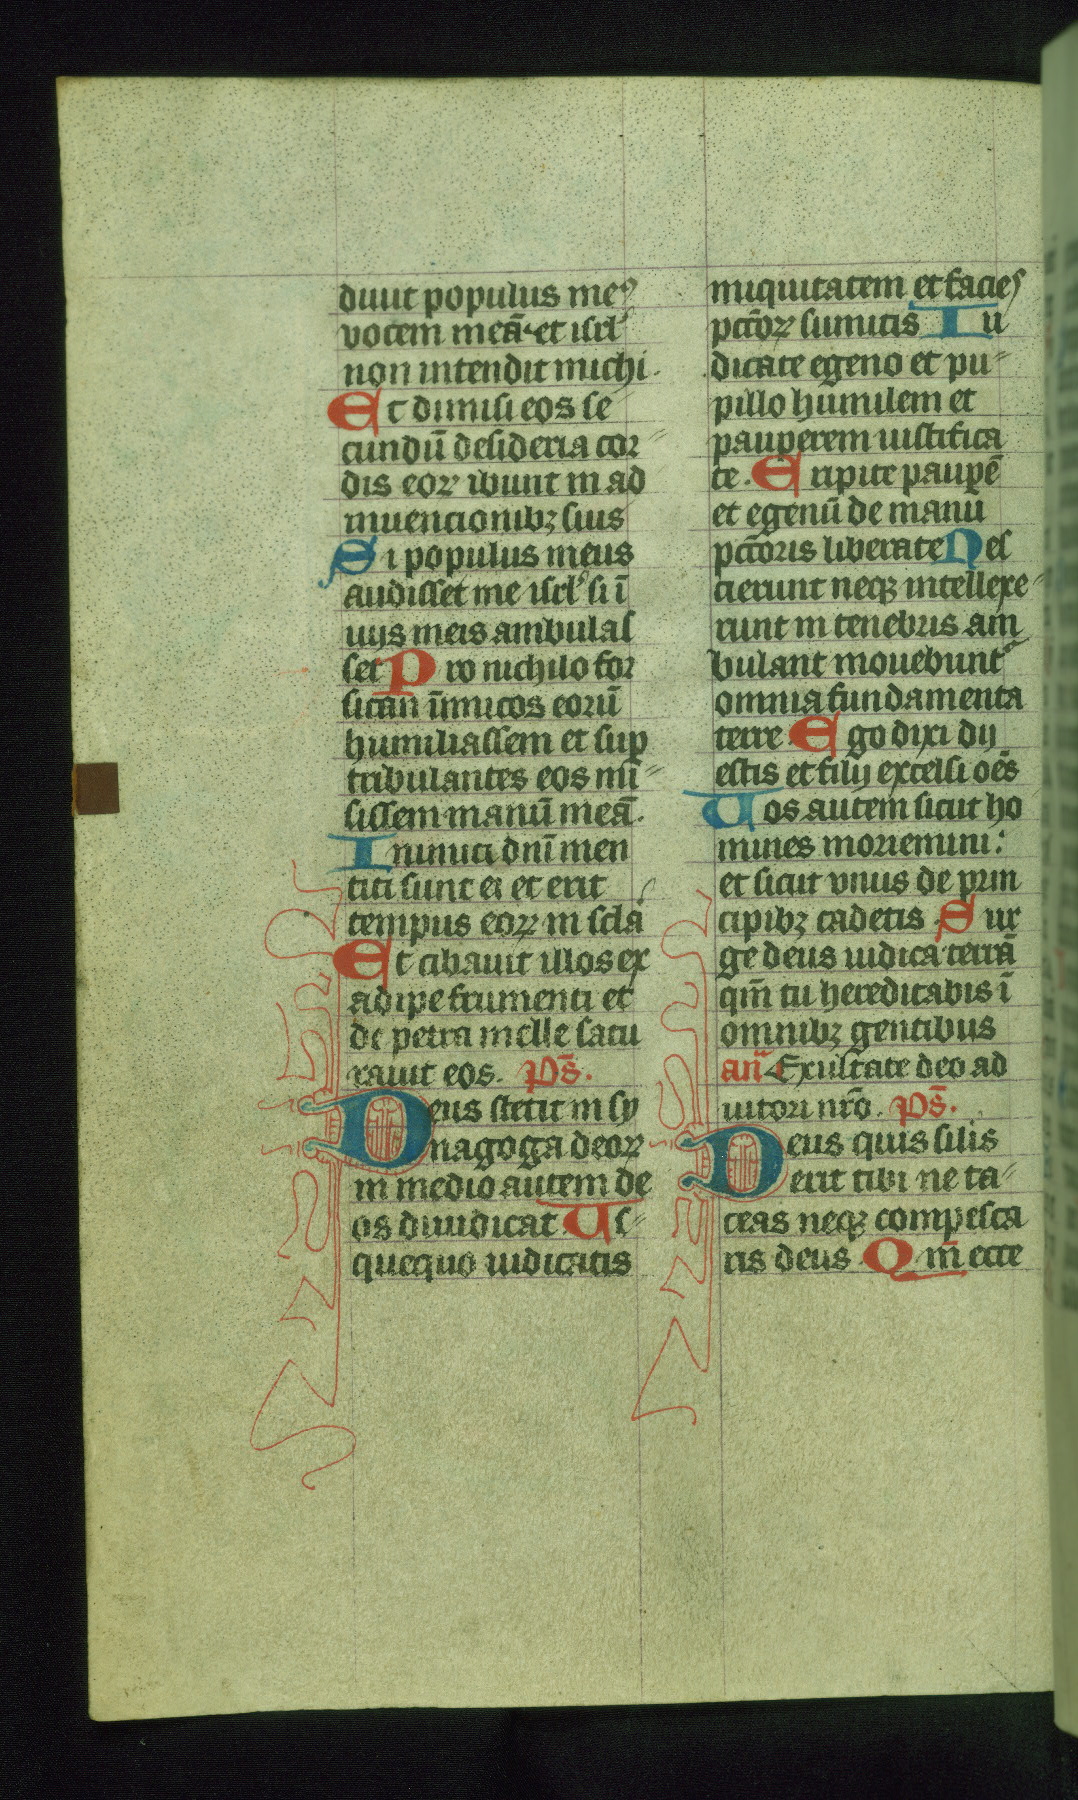 diuit populus meꝰ
vocem meā et isrl'
non intendit michi.
Et dimisi eos se
cundū desideria cor
dis eoꝝ ibunt in ad
inuencionibꝫ suis
Si populus meus
audisset me isrl' si ī
uijs meis ambulas
set Pro nichilo for
sitan īimicos eorū
humiliassem et suꝑ
tribulantes eos mi
sissem manū meā.
Inimici dn̄i men
titi sunt ei et erit
tempus eoꝝ in scl̄a
Et cibauit illos ex
adipe frumenti et
de petra melle satu
rauit eos. Ps̄.
Deus stetit in sy
nagoga deoꝝ
in medio autem de
os diiudicat Us
quequo iudicatis
iniquitatem et facies
pctōꝝ sumitis Iu
dicate egeno et pu
pillo humilem et
pauperem iustifica
te. Eripite paupē
et egenū de manu
pctōris liberate Nes
cierunt neqꝫ intellexe
runt in tenebris am
bulant mouebunt᷑
omnia fundamenta
terre Ego dixi dij
estis et filij excelsi oēs
Uos autem sicut ho
mines moriemini:
et sicut vnus de prin
cipibꝫ cadetis Sur
ge deus iudica terrā
qm̄ tu hereditabis ī
omnibꝫ gentibus
an̄ Exultate deo ad
iutori nr̄o. Ps̄.
Deus quis silis
erit tibi ne ta
ceas neqꝫ compesca
ris deus Qm̄ ecce